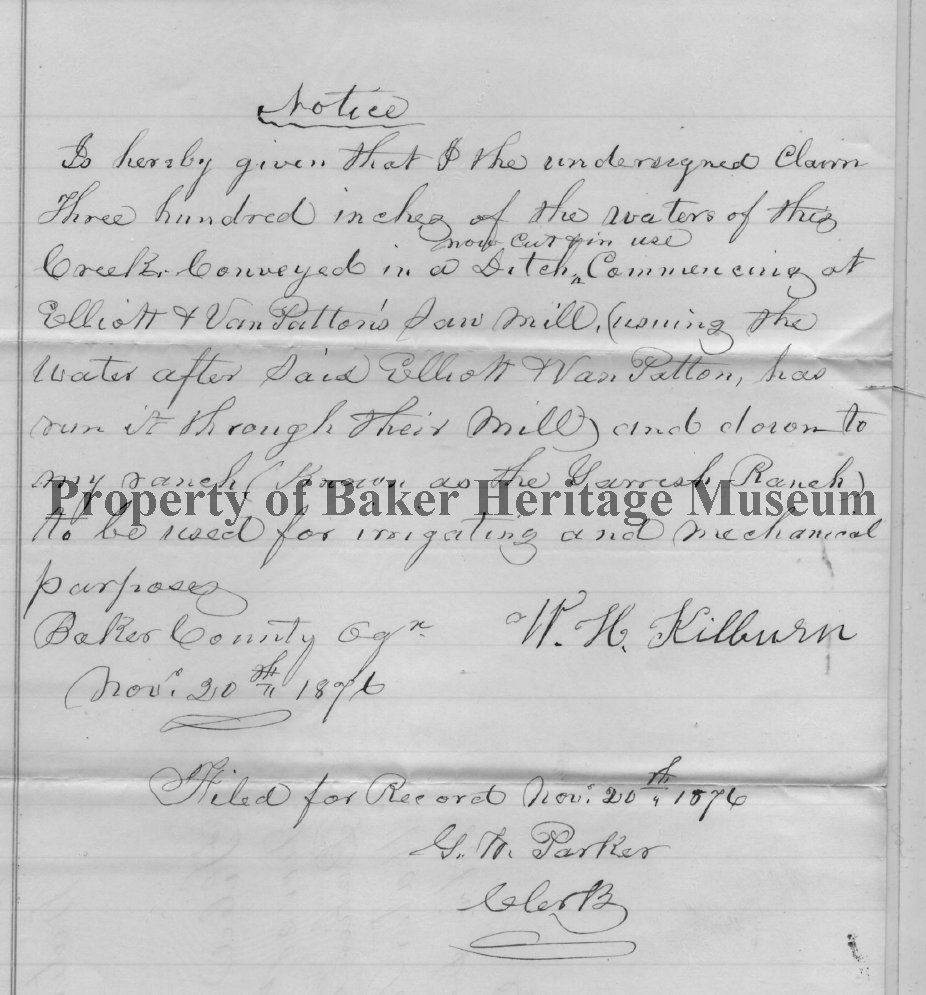 Notice
Is hereby given that I the undersigned Claim
Three hundred inches of the waters of this
now cut & in use
Creek. Conveyed in a Ditch, Commencing at
Elliott & VanPatton's Saw Mill, (using the
Water after Said Elliott & VanPatton, has
run it through their Mill) and down to
my ranch (Known as the Garrish Ranch)
Property of Baker Heritage Museum
to be used for irrigating and mechanical
purposes
Baker County Ogn
W. H. Kilburn
Nov. 20th 1876
Filed for Record Nov. 20th 1876
G. W. Parker
Clerk